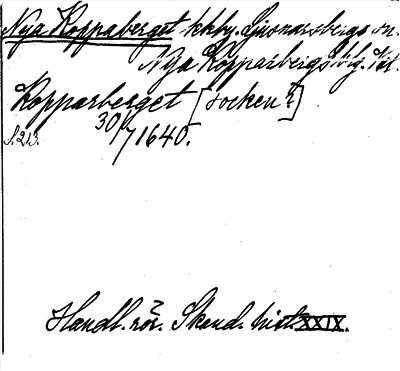 Nya Kopparberget kkby. Ljusnarsbergs sn.
Nya Kopparbergs bg. Vst.
Kopparberget [socken?]
30/7 1640.
S. 213.
Handl. rör. Skand. hist. XXIX.